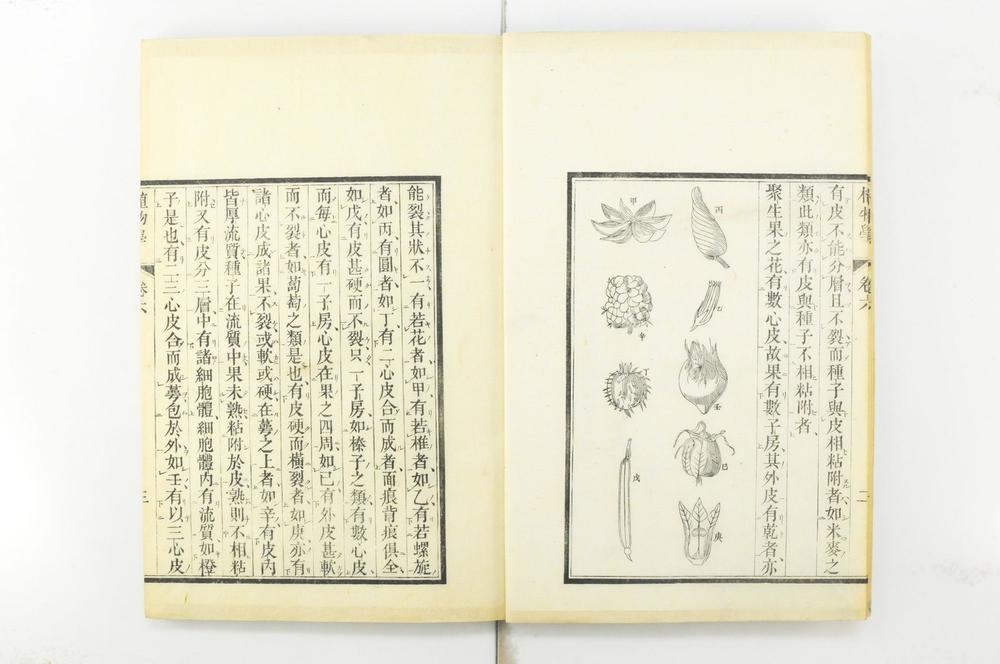 植物學 卷六 二
有皮不能分層且不裂而種子與皮相粘附者如米麥之
類此類亦有皮與種子不相粘附者
聚生果之花有數心皮故果有數子房其外皮有乾者亦
丙
乙
壬
巳
庚
甲
辛
丁
戊
能裂其狀不一有若花者如甲有若椎者如乙有若螺旋
者如丙有圓者如丁有二心皮合而成者面痕背痕俱全
如戊有皮甚硬而不裂只一子房如榛子之類有數心皮
而每心皮有一子房心皮在果之四周如巳有外皮甚軟
而不裂者如萄萄之類是也有皮硬而橫裂者如庚亦有
諸心皮成諸果不裂或軟或硬在萼之上者如辛有皮內
皆厚流質種子在流質中果未熟粘附於皮熟則不相粘
附又有皮分三層中有諸細胞體細胞體內有流質如橙
子是也有二三心皮合而成萼包於外如壬有以三心皮
植物學 卷六 三